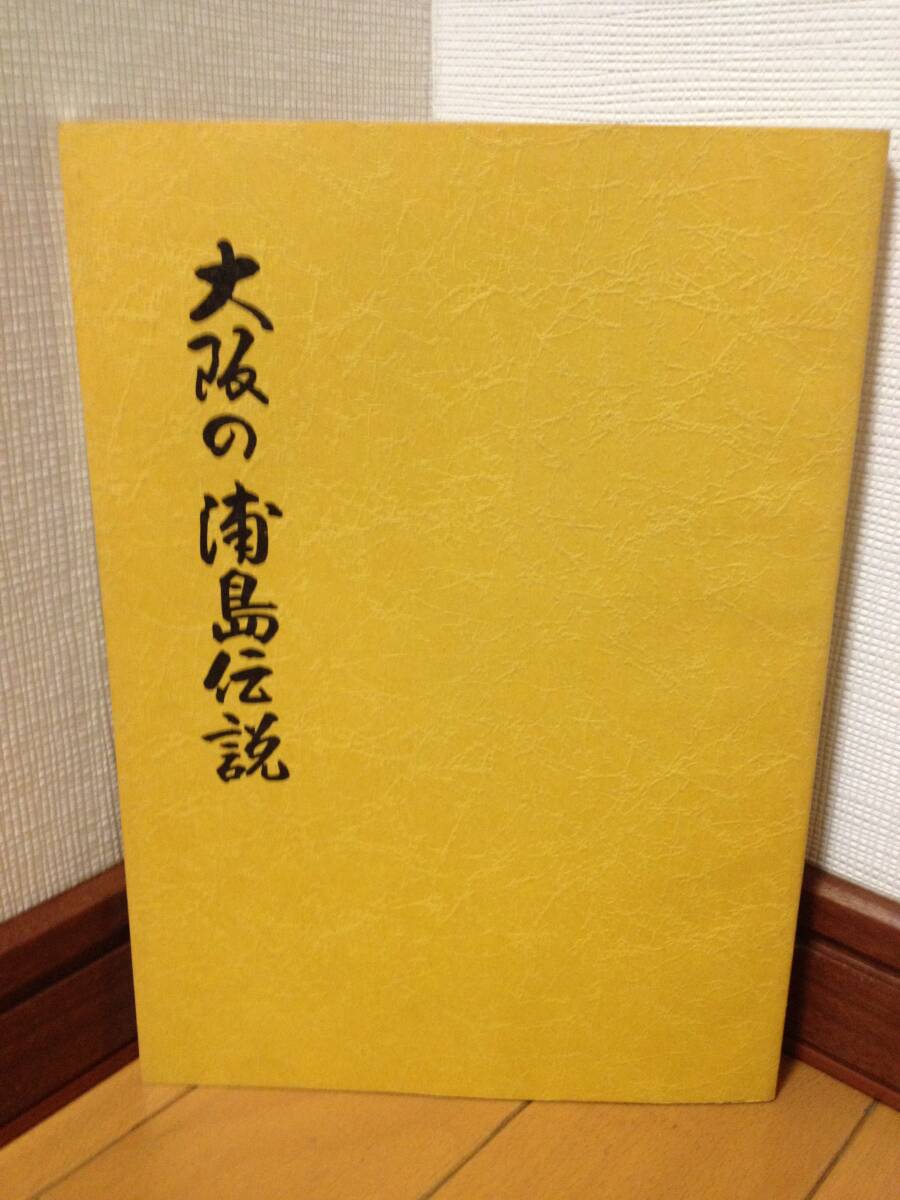 大阪の浦島伝説